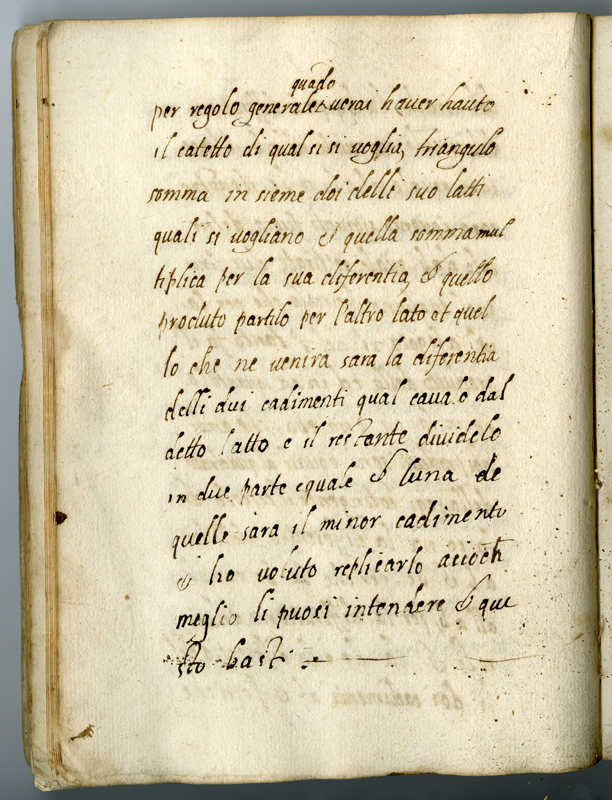 quado
per regolo generale verai haver hauto
il catetto di qual si si voglia, triangulo
somma in sieme doi delli suo latti
quali si vogliano & quella somma mul
tiplica per la sua diferentia, & quello
produto partilo per l'altro lato et quel
lo che ne venira sara la diferentia
delli dui cadimenti qual cavalo dal
detto latto e il restante dividelo
in due parte equale & luna de
quelle sara il minor cadimento
& ho voluto replicarlo acioch
meglio li puosi intendere & que
sto basti